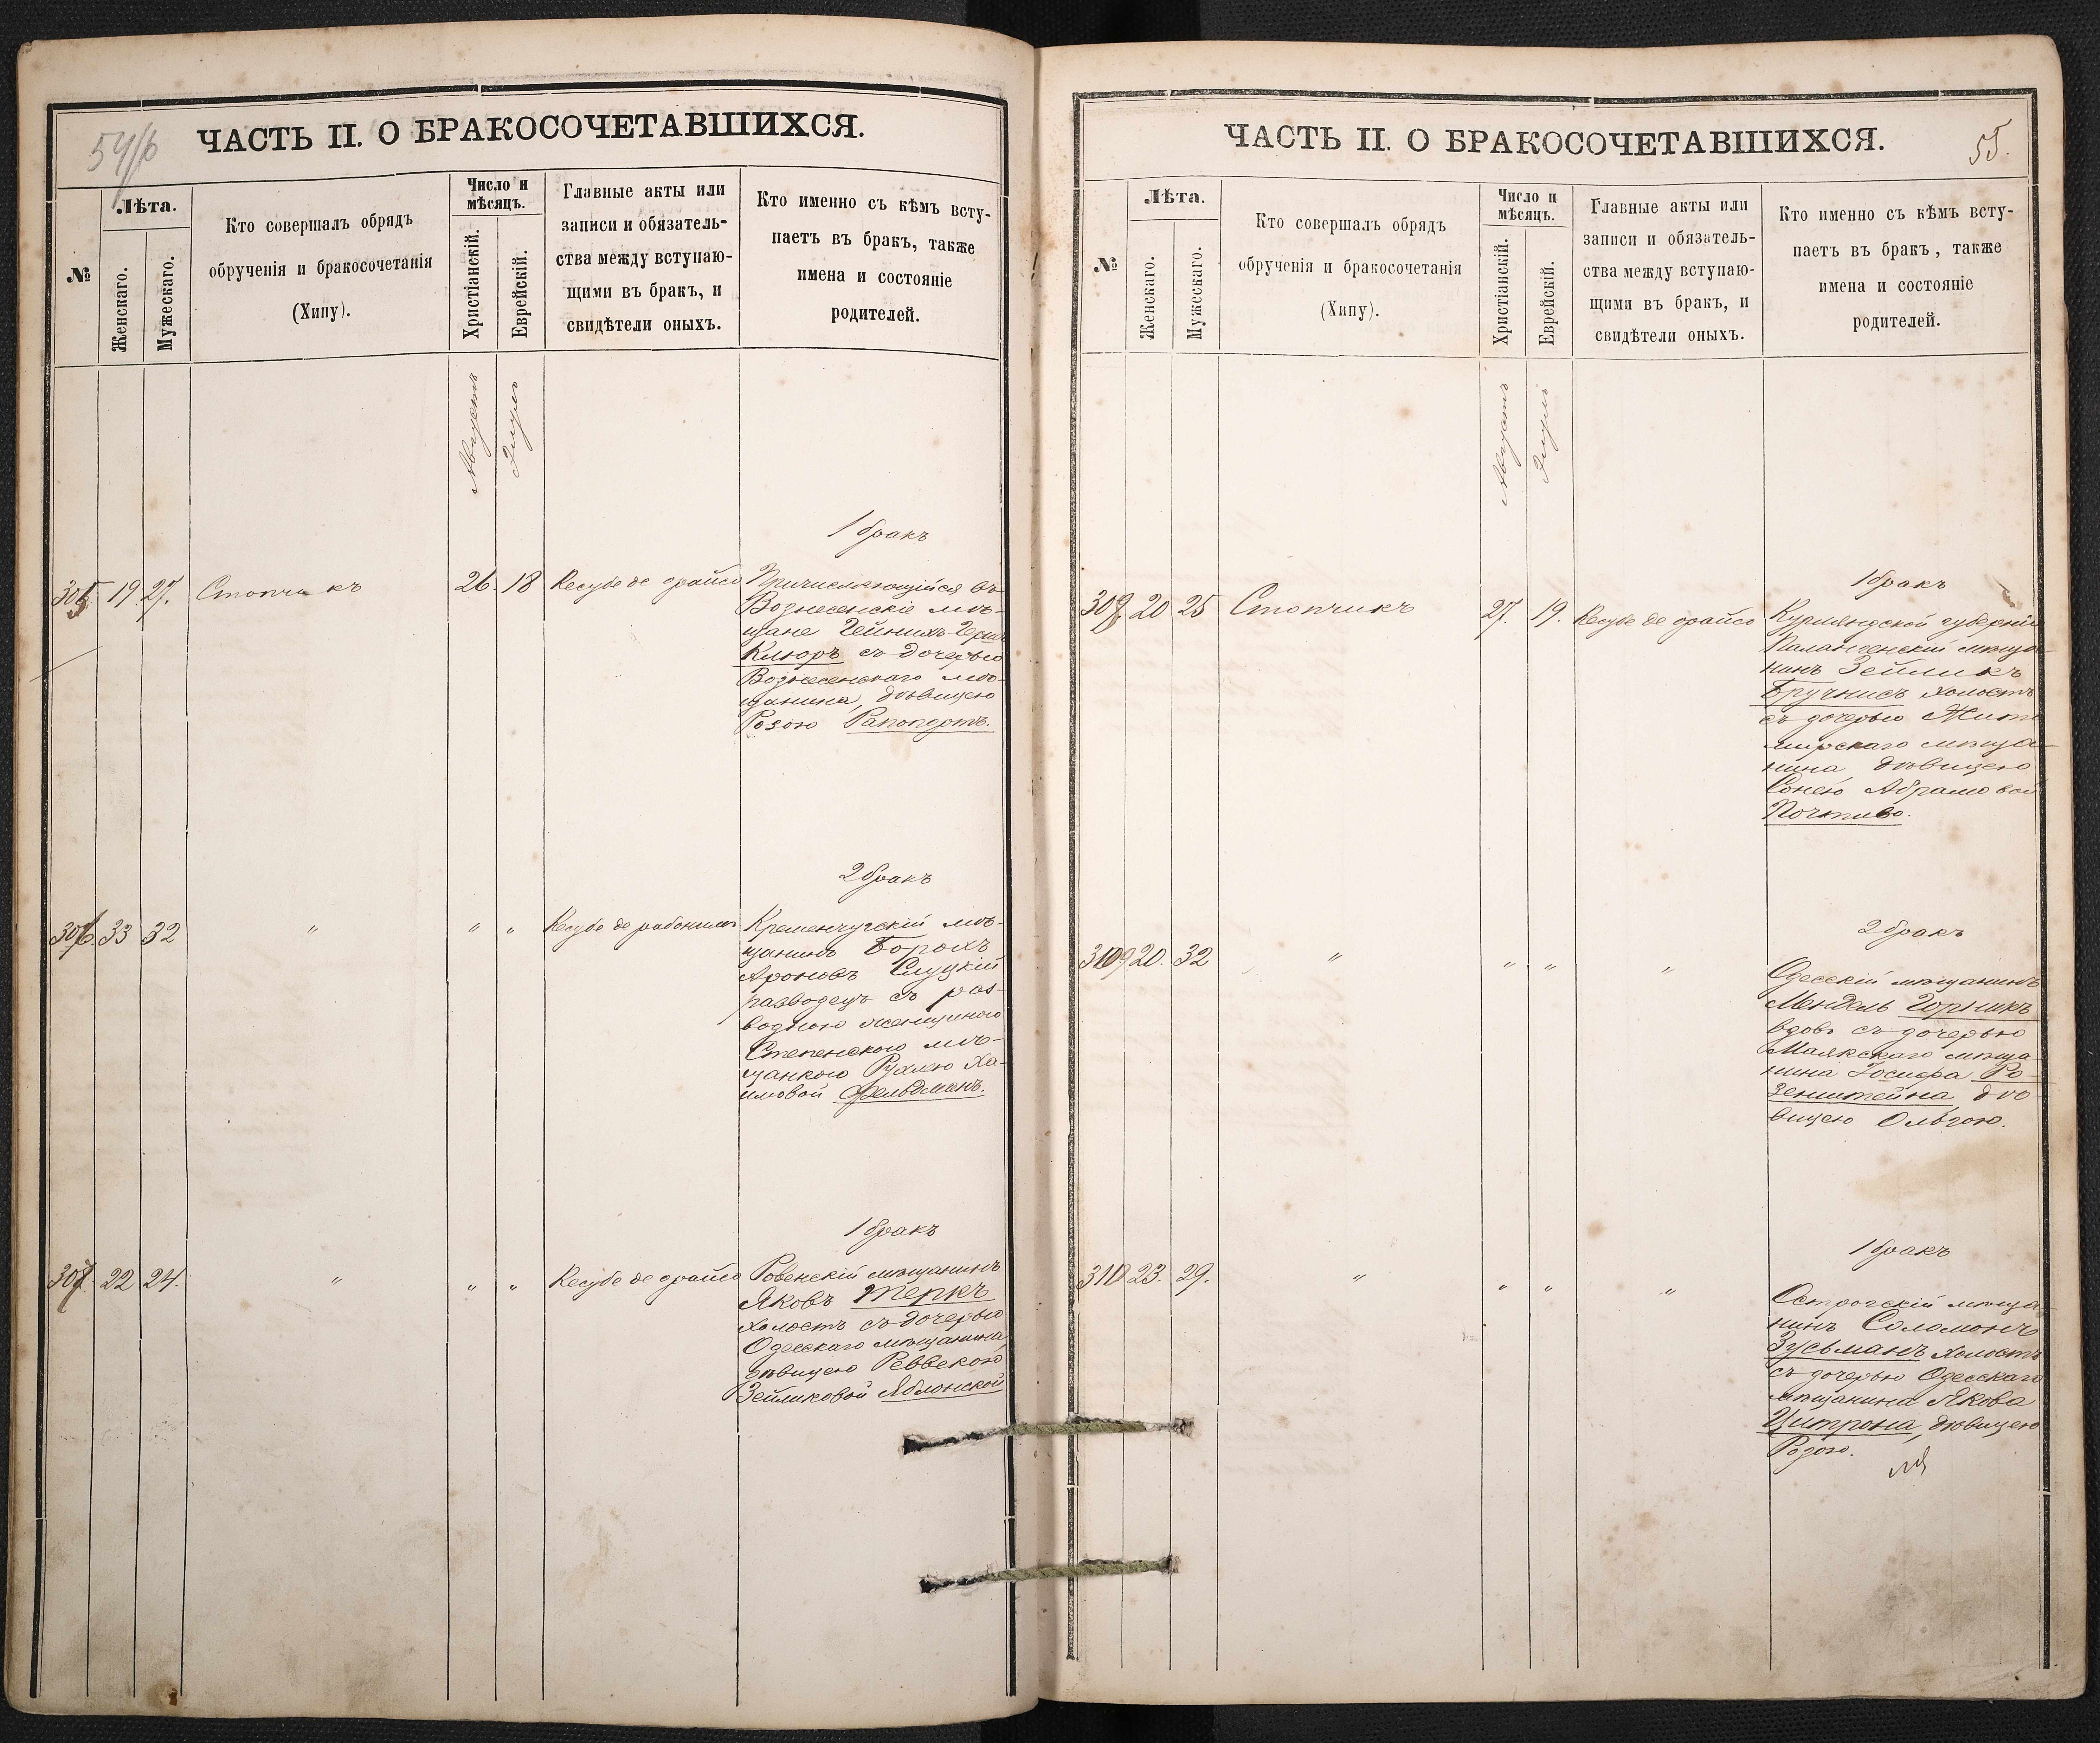 54/б
ЧАСТЬ II. О БРАКОСОЧЕТАВШИХСЯ.
№
Лѣта.
Женскаго.
Мужескаго.
Кто совершалъ обрядъ
обрученія и бракосочетанія
(Хипу).
Число и
мѣсяцъ.
Христіанскій.
Еврейскій.
Главные акты или
записи и обязатель-
ства между вступаю-
щими въ бракъ, и
свидѣтели оныхъ.
Кто именно съ кѣмъ всту-
паетъ въ бракъ, также
имена и состояніе
родителей.
Августъ
Элулъ
1 бракъ
305 19 27. Стопчикъ 26. 18 Кесубе де орайсо
Причисляющійся въ
Вознесенскіе мѣ-
щане Гейнихъ-Герш
Клюръ съ дочерью
Вознесенскаго мѣ-
щанина, дѣвицею
Розою Рапопортъ.
2 бракъ
306 33 32 " " " Кесубе де рабонимъ
Кременчугскій мѣ-
щанинъ Борохъ
Ароновъ Слуцкій
разводецъ съ раз-
водною женщиною
Степенскою мѣ-
щанкою Рухлею Ха-
имовой Фельдманъ.
1 бракъ
307. 22 24. " " " Кесубе де орайсо
Ровенскій мѣщанинъ
Яковъ Теркъ
холостъ съ дочерью
Одесскаго мѣщанина,
дѣвицею Реввекою
Зейликовой Яблонской
ЧАСТЬ II. О БРАКОСОЧЕТАВШИХСЯ.
55.
№
Лѣта.
Женскаго.
Мужескаго.
Кто совершалъ обрядъ
обрученія и бракосочетанія
(Хипу).
Число и
мѣсяцъ.
Христіанскій.
Еврейскій.
Главные акты или
записи и обязатель-
ства между вступаю-
щими въ бракъ, и
свидѣтели оныхъ.
Кто именно съ кѣмъ всту-
паетъ въ бракъ, также
имена и состояніе
родителей.
Августъ
Элулъ
1 бракъ
20 25 Стопчикъ 27. 19. Кесубе де орайсо
Курляндской губерніи
Палангенскій мѣща-
нинъ Зейликъ
Бручнисъ холостъ
съ дочерью Жито
мирскаго мѣща-
нина, дѣвицею
Сонею Абрамовой
2 бракъ
20. 32 " " " "
Одесскій мѣщанинъ
Мендель Горникъ
вдовъ съ дочерью
Маякскаго мѣща
нина Іосифа Ро-
зенштейна, дѣ
вицею Ольгою.
1 бракъ
310 23. 29. " " " "
Острогскій мѣща-
нинъ Соломонъ
Зусьманъ холостъ
съ дочерью Одесскаго
мѣщанина Якова
Цитрона, дѣвицею
Розою.